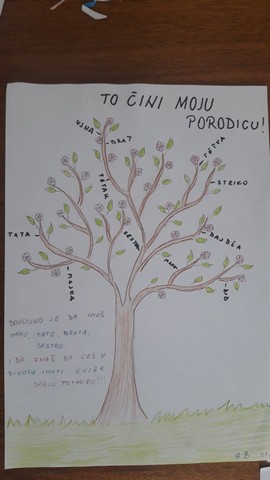 TO ČINI MOJU
PORODICU!
UJNA
BRAT
TETAK
TETKA
STRIKO
SESTRA
TATA
DAJDŽA
MAJKA
DOVOLJNO JE DA IMAŠ
MAMU, TATU, BRATA,
SESTRU...
I DA ZNAŠ DA ĆEŠ U
ŽIVOTU IMATI UVIJEK
SVOJU POTPORU!!!
A B